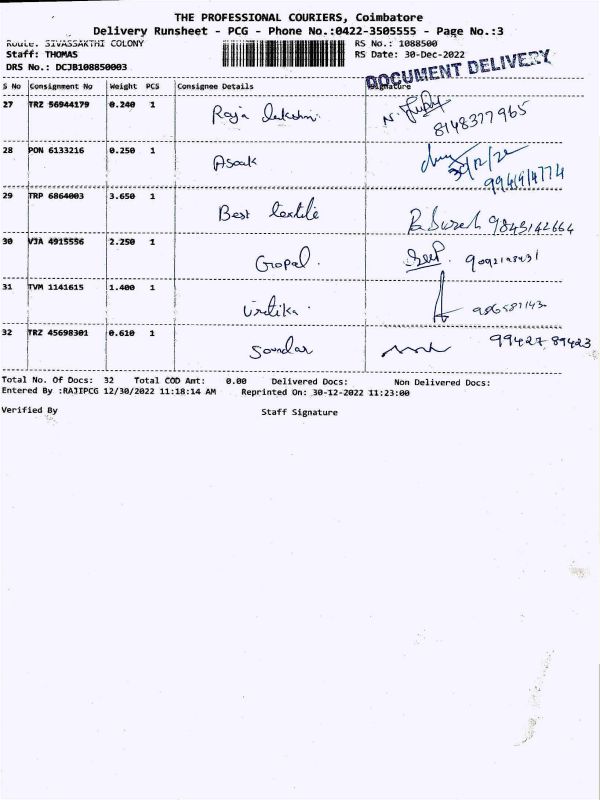 THE PROFESSIONAL COURIERS, Coimbatore
Delivery Runsheet - PCG - Phone No.:0422-3505555 - Page No.:3
Route. SIVASSAKTHI COLONY
RS No.: 1088500
Staff: THOMAS
RS Date: 30-Dec-2022
DRS No.: DCJB108850003
DOCUMENT DELIVERY
S No Consignment No Weight PCS Consignee Details Signature
27 TRZ 56944179 0.240 1 Raja lakshmi
8148377965
28 PON 6133216 0.250 1 Asoak
30/12/22
29 TRP 6864003 3.650 1 Best textile
9843142664
30 VJA 4915556 2.250 1 Gopal.
31 TVM 1141615 1.400 1
32 TRZ 45698301 0.610 1 Soundar 99427 89423
Total No. Of Docs: 32 Total COD Amt: 0.00 Delivered Docs: Non Delivered Docs:
Entered By :RAJIPCG 12/30/2022 11:18:14 AM Reprinted On: 30-12-2022 11:23:00
Verified By Staff Signature